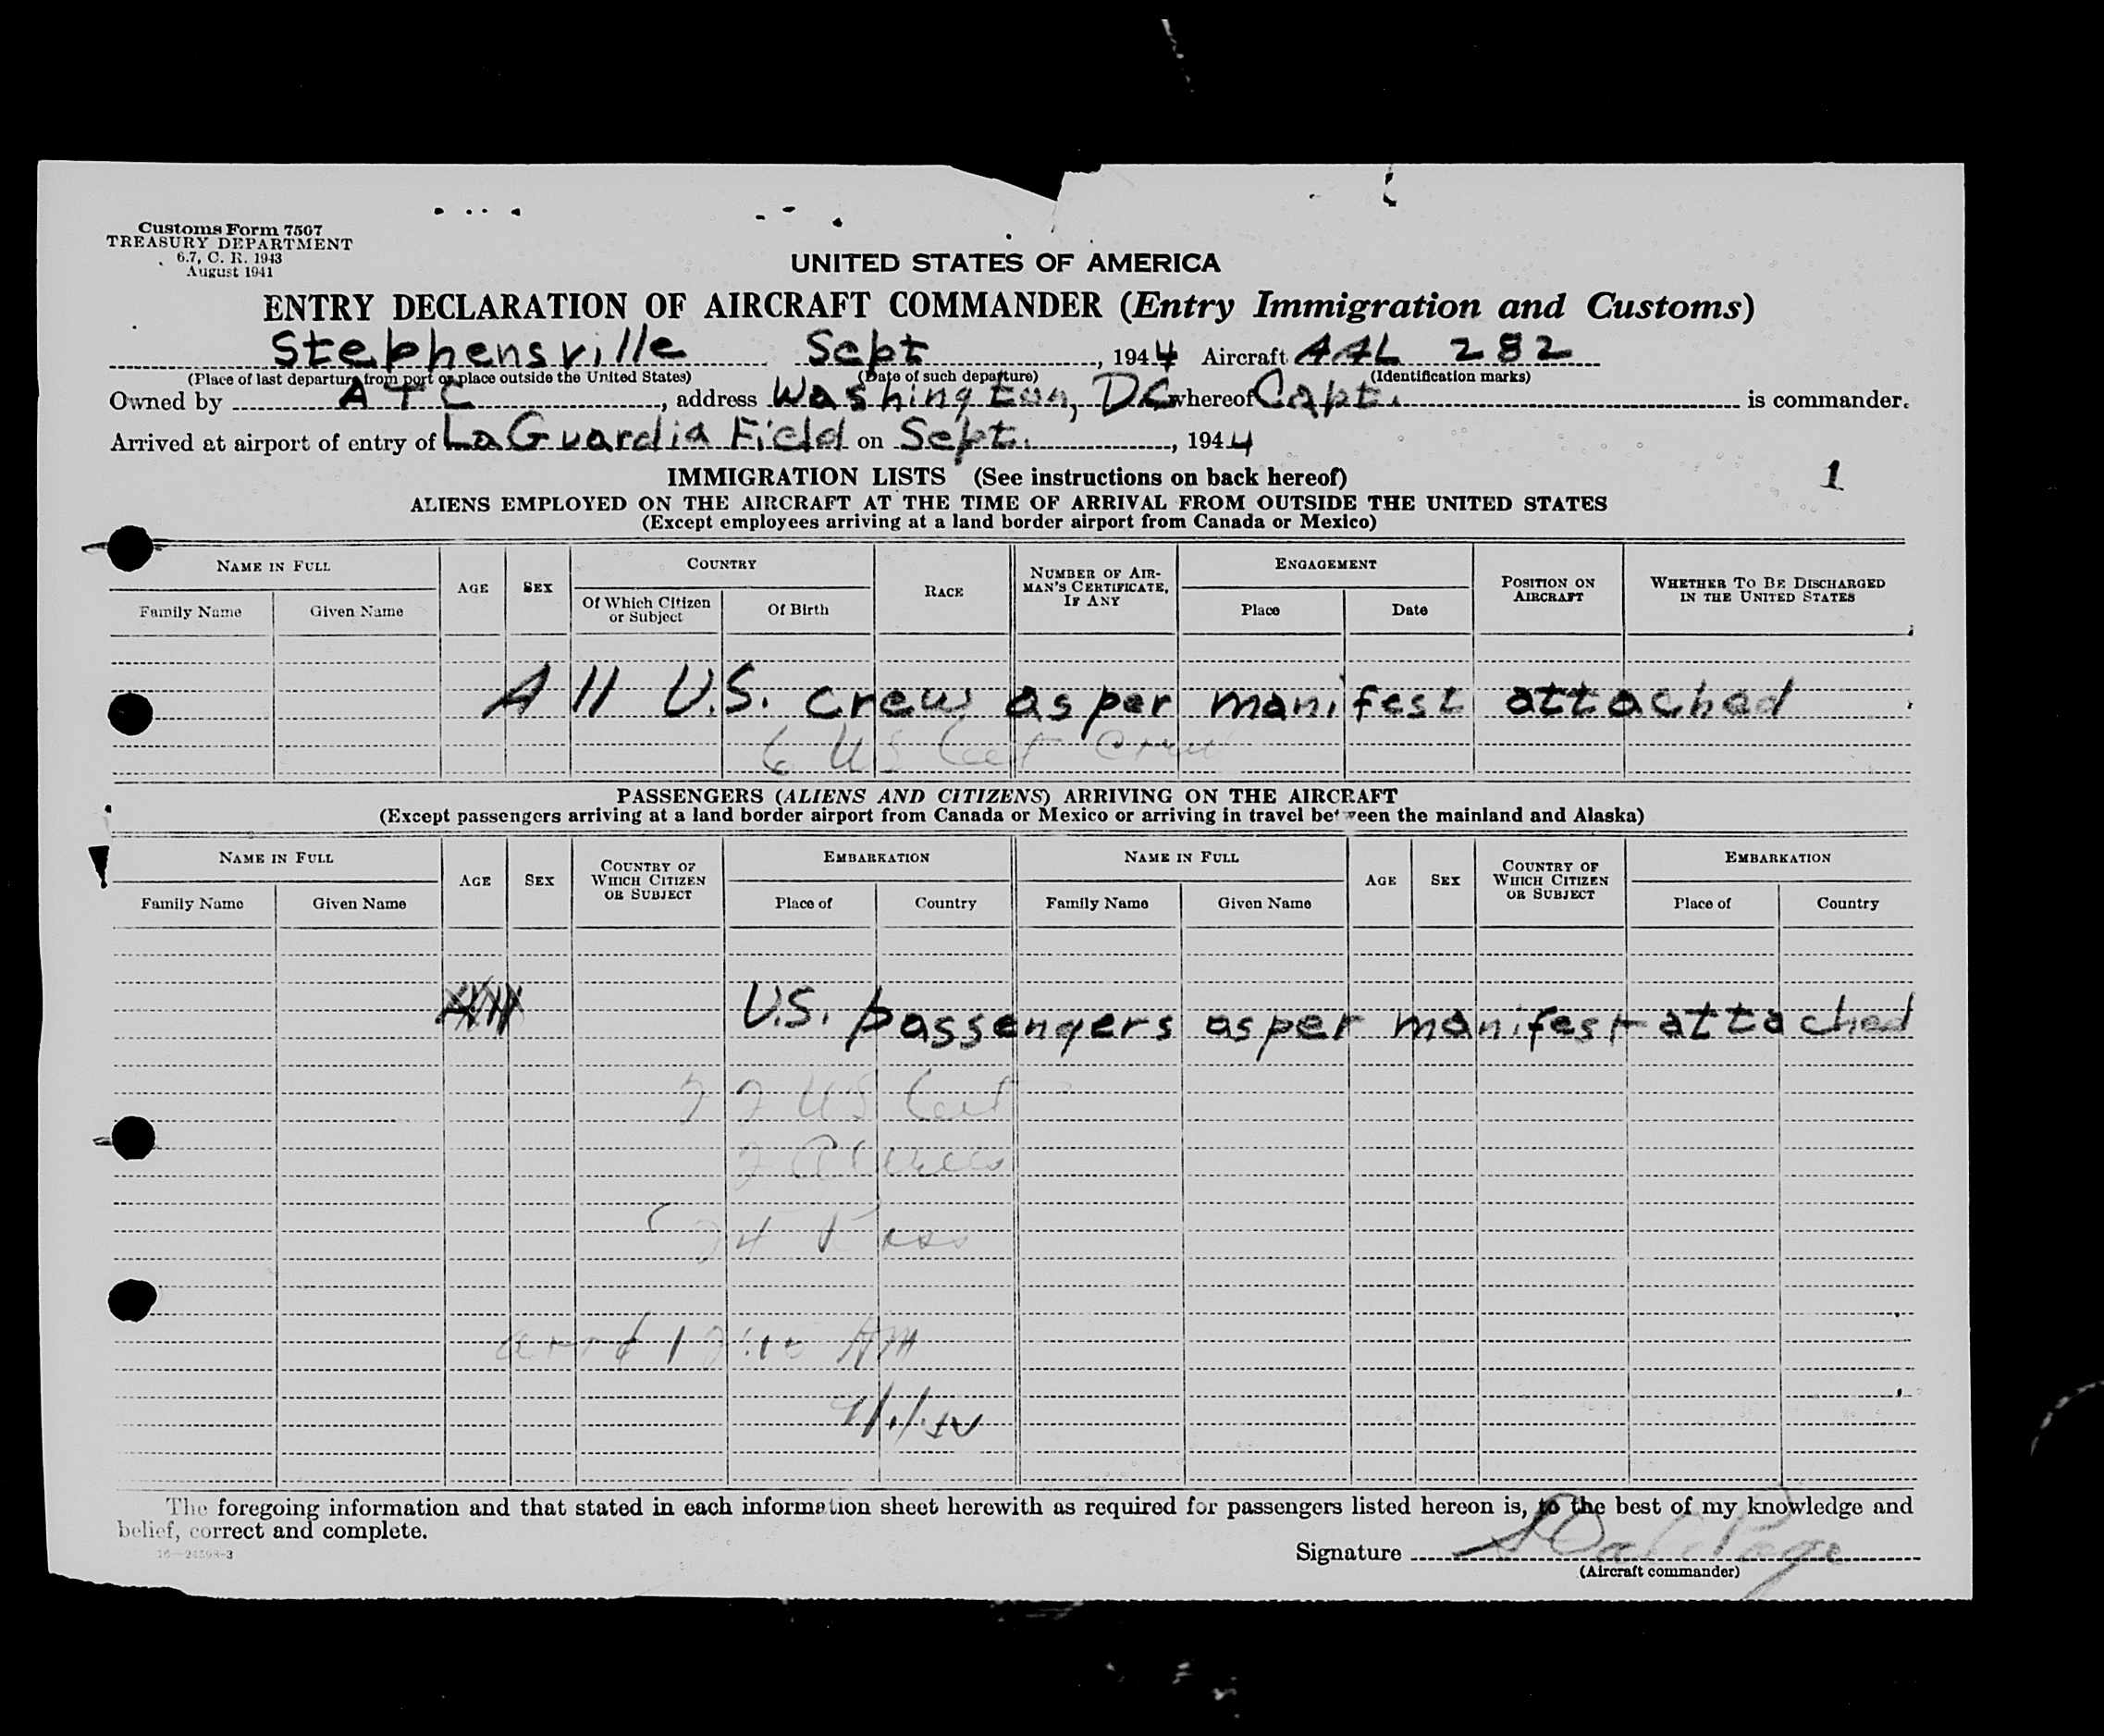 Customs Form 7507
TREASURY DEPARTMENT
6.7, C. R. 1943
August 1941
UNITED STATES OF AMERICA
ENTRY DECLARATION OF AIRCRAFT COMMANDER (Entry Immigration and Customs)
Stephensville Sept, 1944 Aircraft AAL 282
(Place of last departure from port or place outside the United States) (Date of such departure) (Identification marks)
Owned by ATC, address Washington, DC whereof Capt. is commander.
Arrived at airport of entry of LaGuardia Field on Sept., 1944
IMMIGRATION LISTS (See instructions on back hereof)
1
ALIENS EMPLOYED ON THE AIRCRAFT AT THE TIME OF ARRIVAL FROM OUTSIDE THE UNITED STATES
(Except employees arriving at a land border airport from Canada or Mexico)
NAME IN FULL AGE SEX COUNTRY RACE NUMBER OF AIRMAN'S CERTIFICATE, IF ANY ENGAGEMENT POSITION ON AIRCRAFT WHETHER TO BE DISCHARGED IN THE UNITED STATES
Family Name Given Name Of Which Citizen or Subject Of Birth Place Date
All U.S. crew as per manifest attached
6 US Crew
PASSENGERS (ALIENS AND CITIZENS) ARRIVING ON THE AIRCRAFT
(Except passengers arriving at a land border airport from Canada or Mexico or arriving in travel between the mainland and Alaska)
NAME IN FULL AGE SEX COUNTRY OF WHICH CITIZEN OR SUBJECT EMBARKATION NAME IN FULL AGE SEX COUNTRY OF WHICH CITIZEN OR SUBJECT EMBARKATION
Family Name Given Name Place of Country Family Name Given Name Place of Country
U.S. passengers as per manifest attached
22 US
2 Aliens
24 Pass
AM
The foregoing information and that stated in each information sheet herewith as required for passengers listed hereon is, to the best of my knowledge and
belief, correct and complete.
Signature
(Aircraft commander)